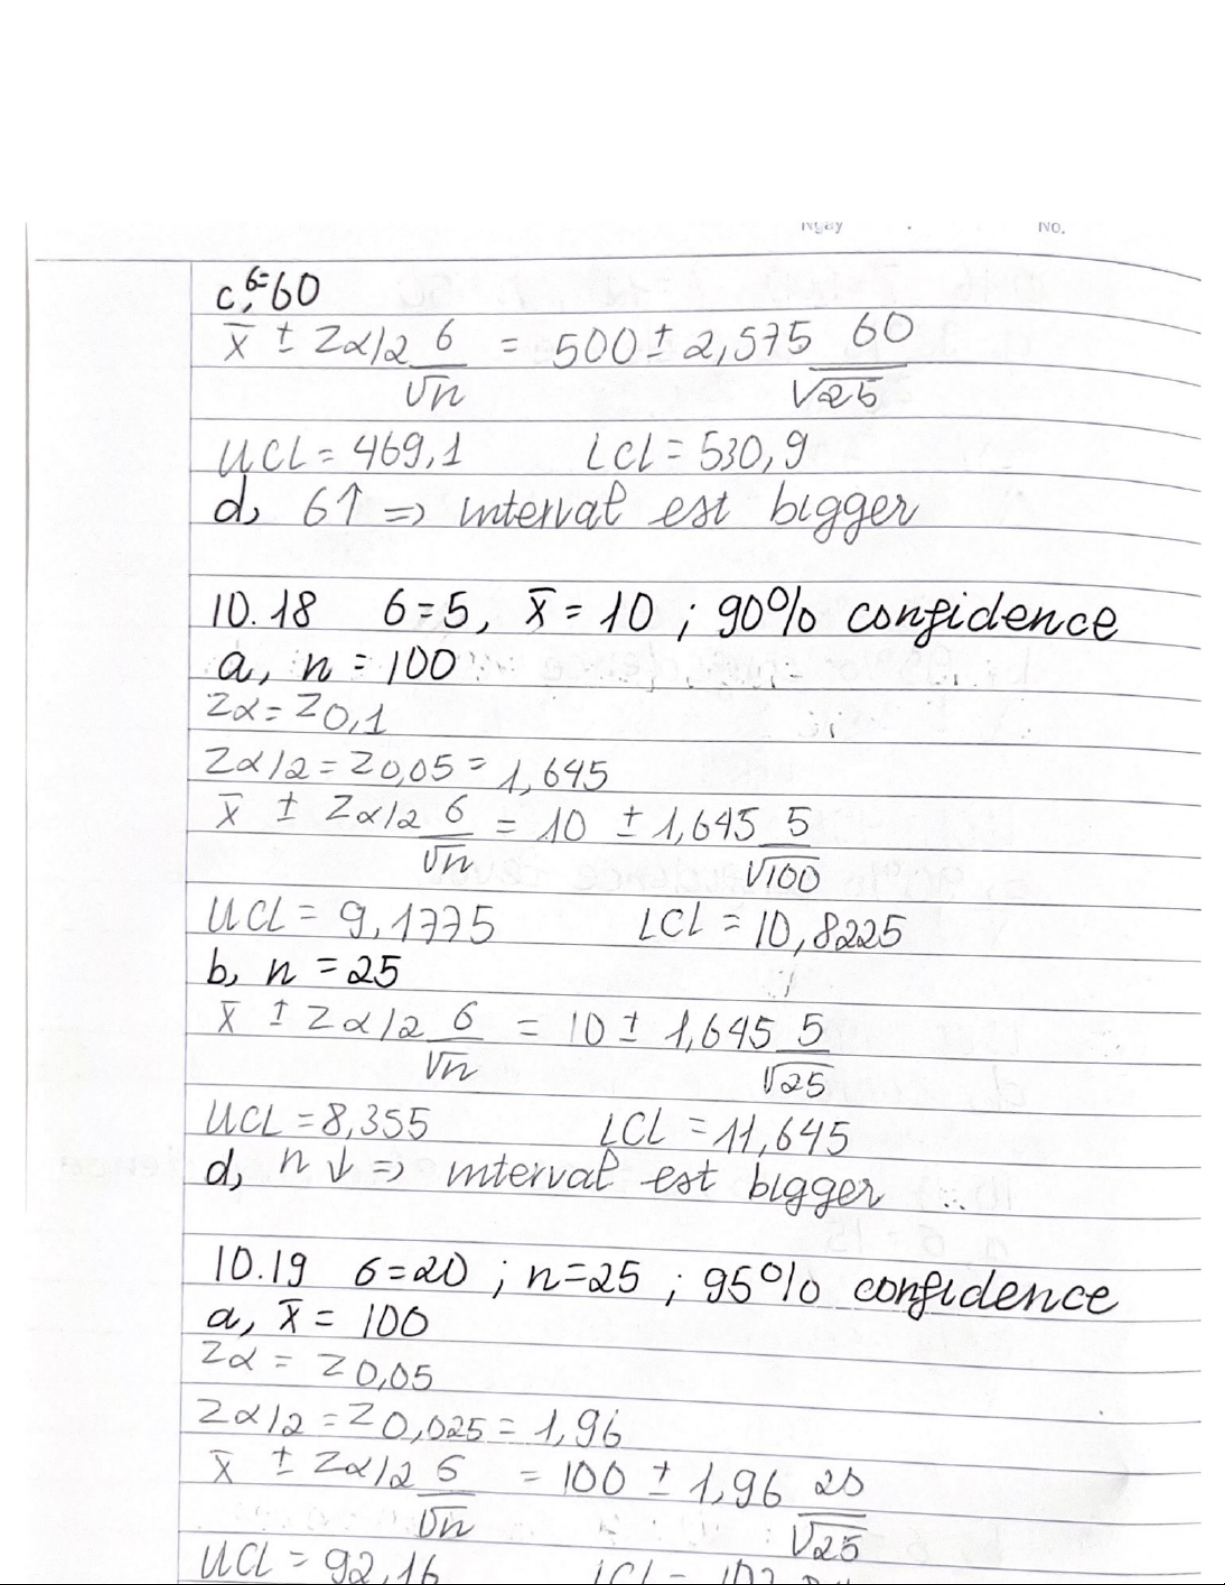 Ngày No.
c, 6=60
x̄ ± Zα/2 6/√n = 500 ± 2,575 60/√25
UCL = 469,1 LCL = 530,9
d, 6↑ => interval est bigger
10.18 6=5, x̄ = 10 ; 90% confidence
a, n = 100
Zα = Z0,1
Zα/2 = Z0,05 = 1,645
x̄ ± Zα/2 6/√n = 10 ± 1,645 5/√100
UCL = 9,1775 LCL = 10,8225
b, n = 25
x̄ ± Zα/2 6/√n = 10 ± 1,645 5/√25
UCL = 8,355 LCL = 11,645
d, n ↓ => interval est bigger
10.19 6=20 ; n=25 ; 95% confidence
a, x̄ = 100
Zα = Z0,05
Zα/2 = Z0,025 = 1,96
x̄ ± Zα/2 6/√n = 100 ± 1,96 20/√25
UCL = 92,16 LCL =